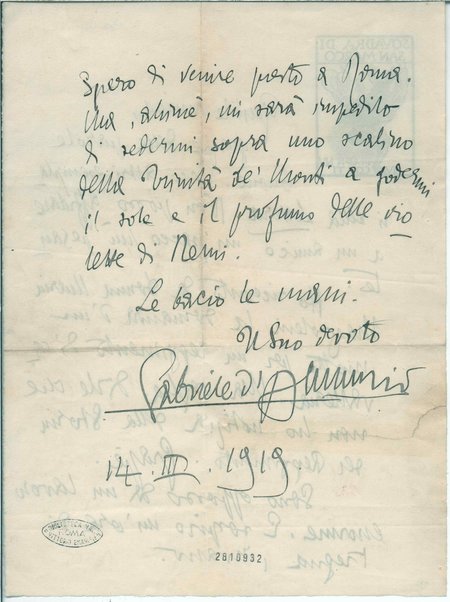 Spero di venire presto a Roma.
Ma, ahimè, mi sarà impedito
di sedermi sopra uno scalino
della Trinità de' Monti a godermi
il sole e il profumo delle vio
lette di Nemi.
Le bacio le mani.
Il Suo devoto
Gabriele d'Annunzio
14. III. 1919
ROMA
VITTORIO EMANUELE
2810932